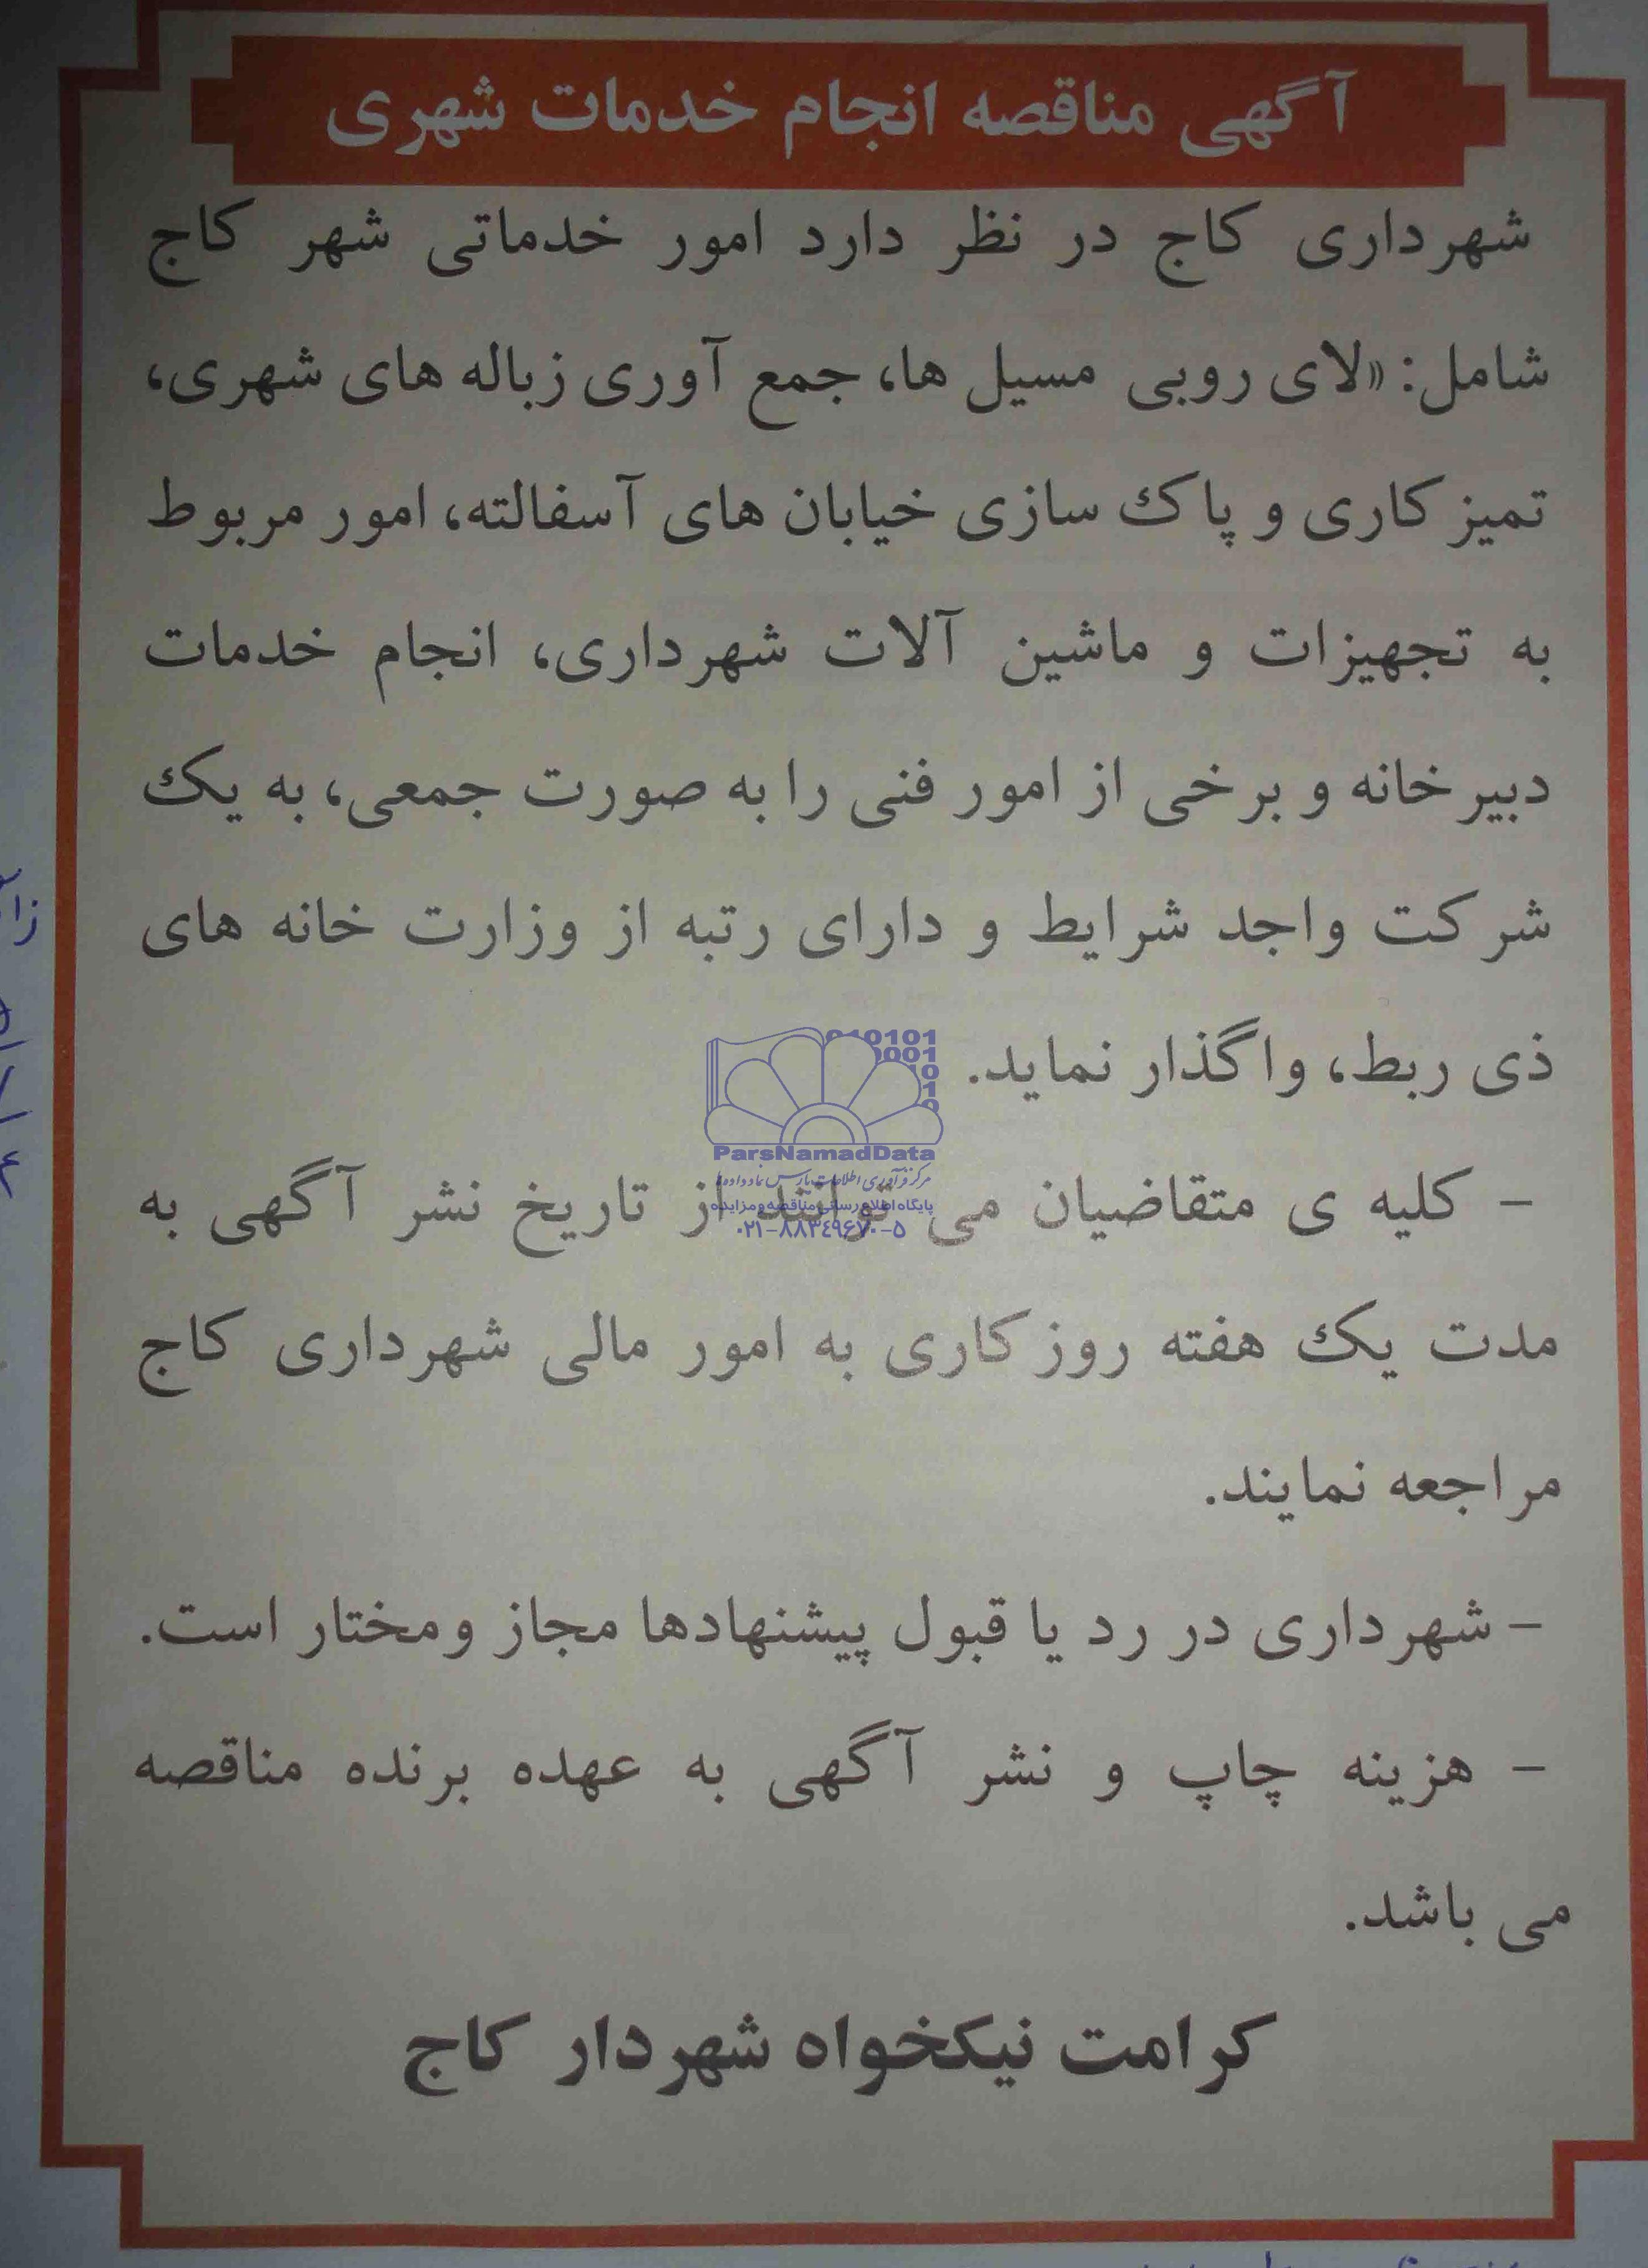 آگهی مناقصه انجام خدمات شهری
شهرداری کاج در نظر دارد امور خدماتی شهر کاج
شامل: «لای روبی مسیل ها، جمع آوری زباله های شهری،
تمیز کاری و پاک سازی خیابان های آسفالته، امور مربوط
به تجهیزات و ماشین آلات شهرداری، انجام خدمات
دبیر خانه و برخی از امور فنی را به صورت جمعی، به یک
شرکت واجد شرایط و دارای رتبه از وزارت خانه های
ذی ربط، واگذار نماید.
010101
0001
ParsNamadData
مرکز فرآوری اطلاعات پارس نماد داده ها
پایگاه اطلاع رسانی مناقصه و مزایده
۰۲۱-۸۸۳۴۹۶۷۰-۵
- کلیه ی متقاضیان می توانند از تاریخ نشر آگهی به
مدت یک هفته روز کاری به امور مالی شهرداری کاج
مراجعه نمایند.
- شهرداری در رد یا قبول پیشنهادها مجاز ومختار است.
- هزینه چاپ و نشر آگهی به عهده برنده مناقصه
می باشد.
کرامت نیکخواه شهردار کاج